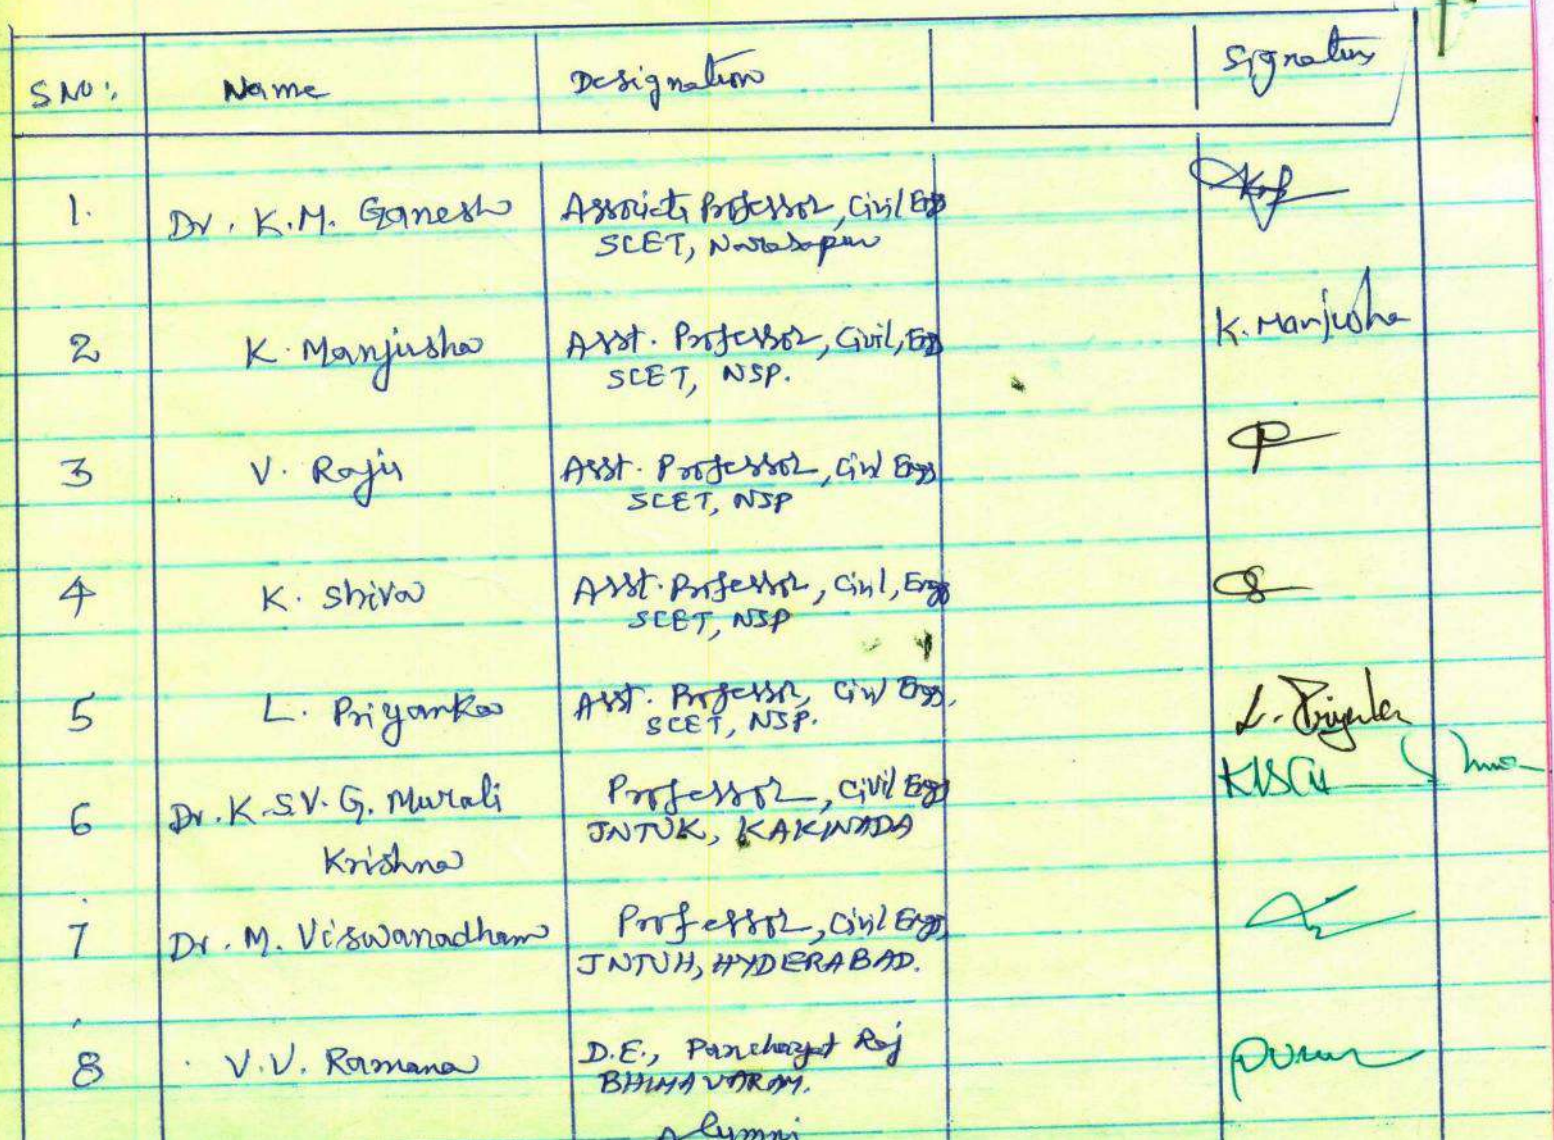 S NO: Name Designation Signature
1. Dr. K.M. Ganesh Associate Professor, Civil Engg
SCET, Narasapur
2 K. Manjusha Asst. Professor, Civil, Engg K. Manjusha
SCET, NSP.
3 V. Raju Asst. Professor, Civil Engg
SCET, NSP
4 K. Shiva Asst. Professor, Civil, Engg
SCET, NSP
5 L. Priyanka Asst. Professor, Civil Engg. L. Priyanka
SCET, NSP.
6 Dr. K.S.V. G. Murali Professor, Civil Engg
JNTUK, KAKINADA
Krishna
7 Dr. M. Viswanadham Professor, Civil Engg
JNTUH, HYDERABAD.
8 V.V. Ramana D.E., Panchayat Raj
BHIMAVARAM.
Alumni